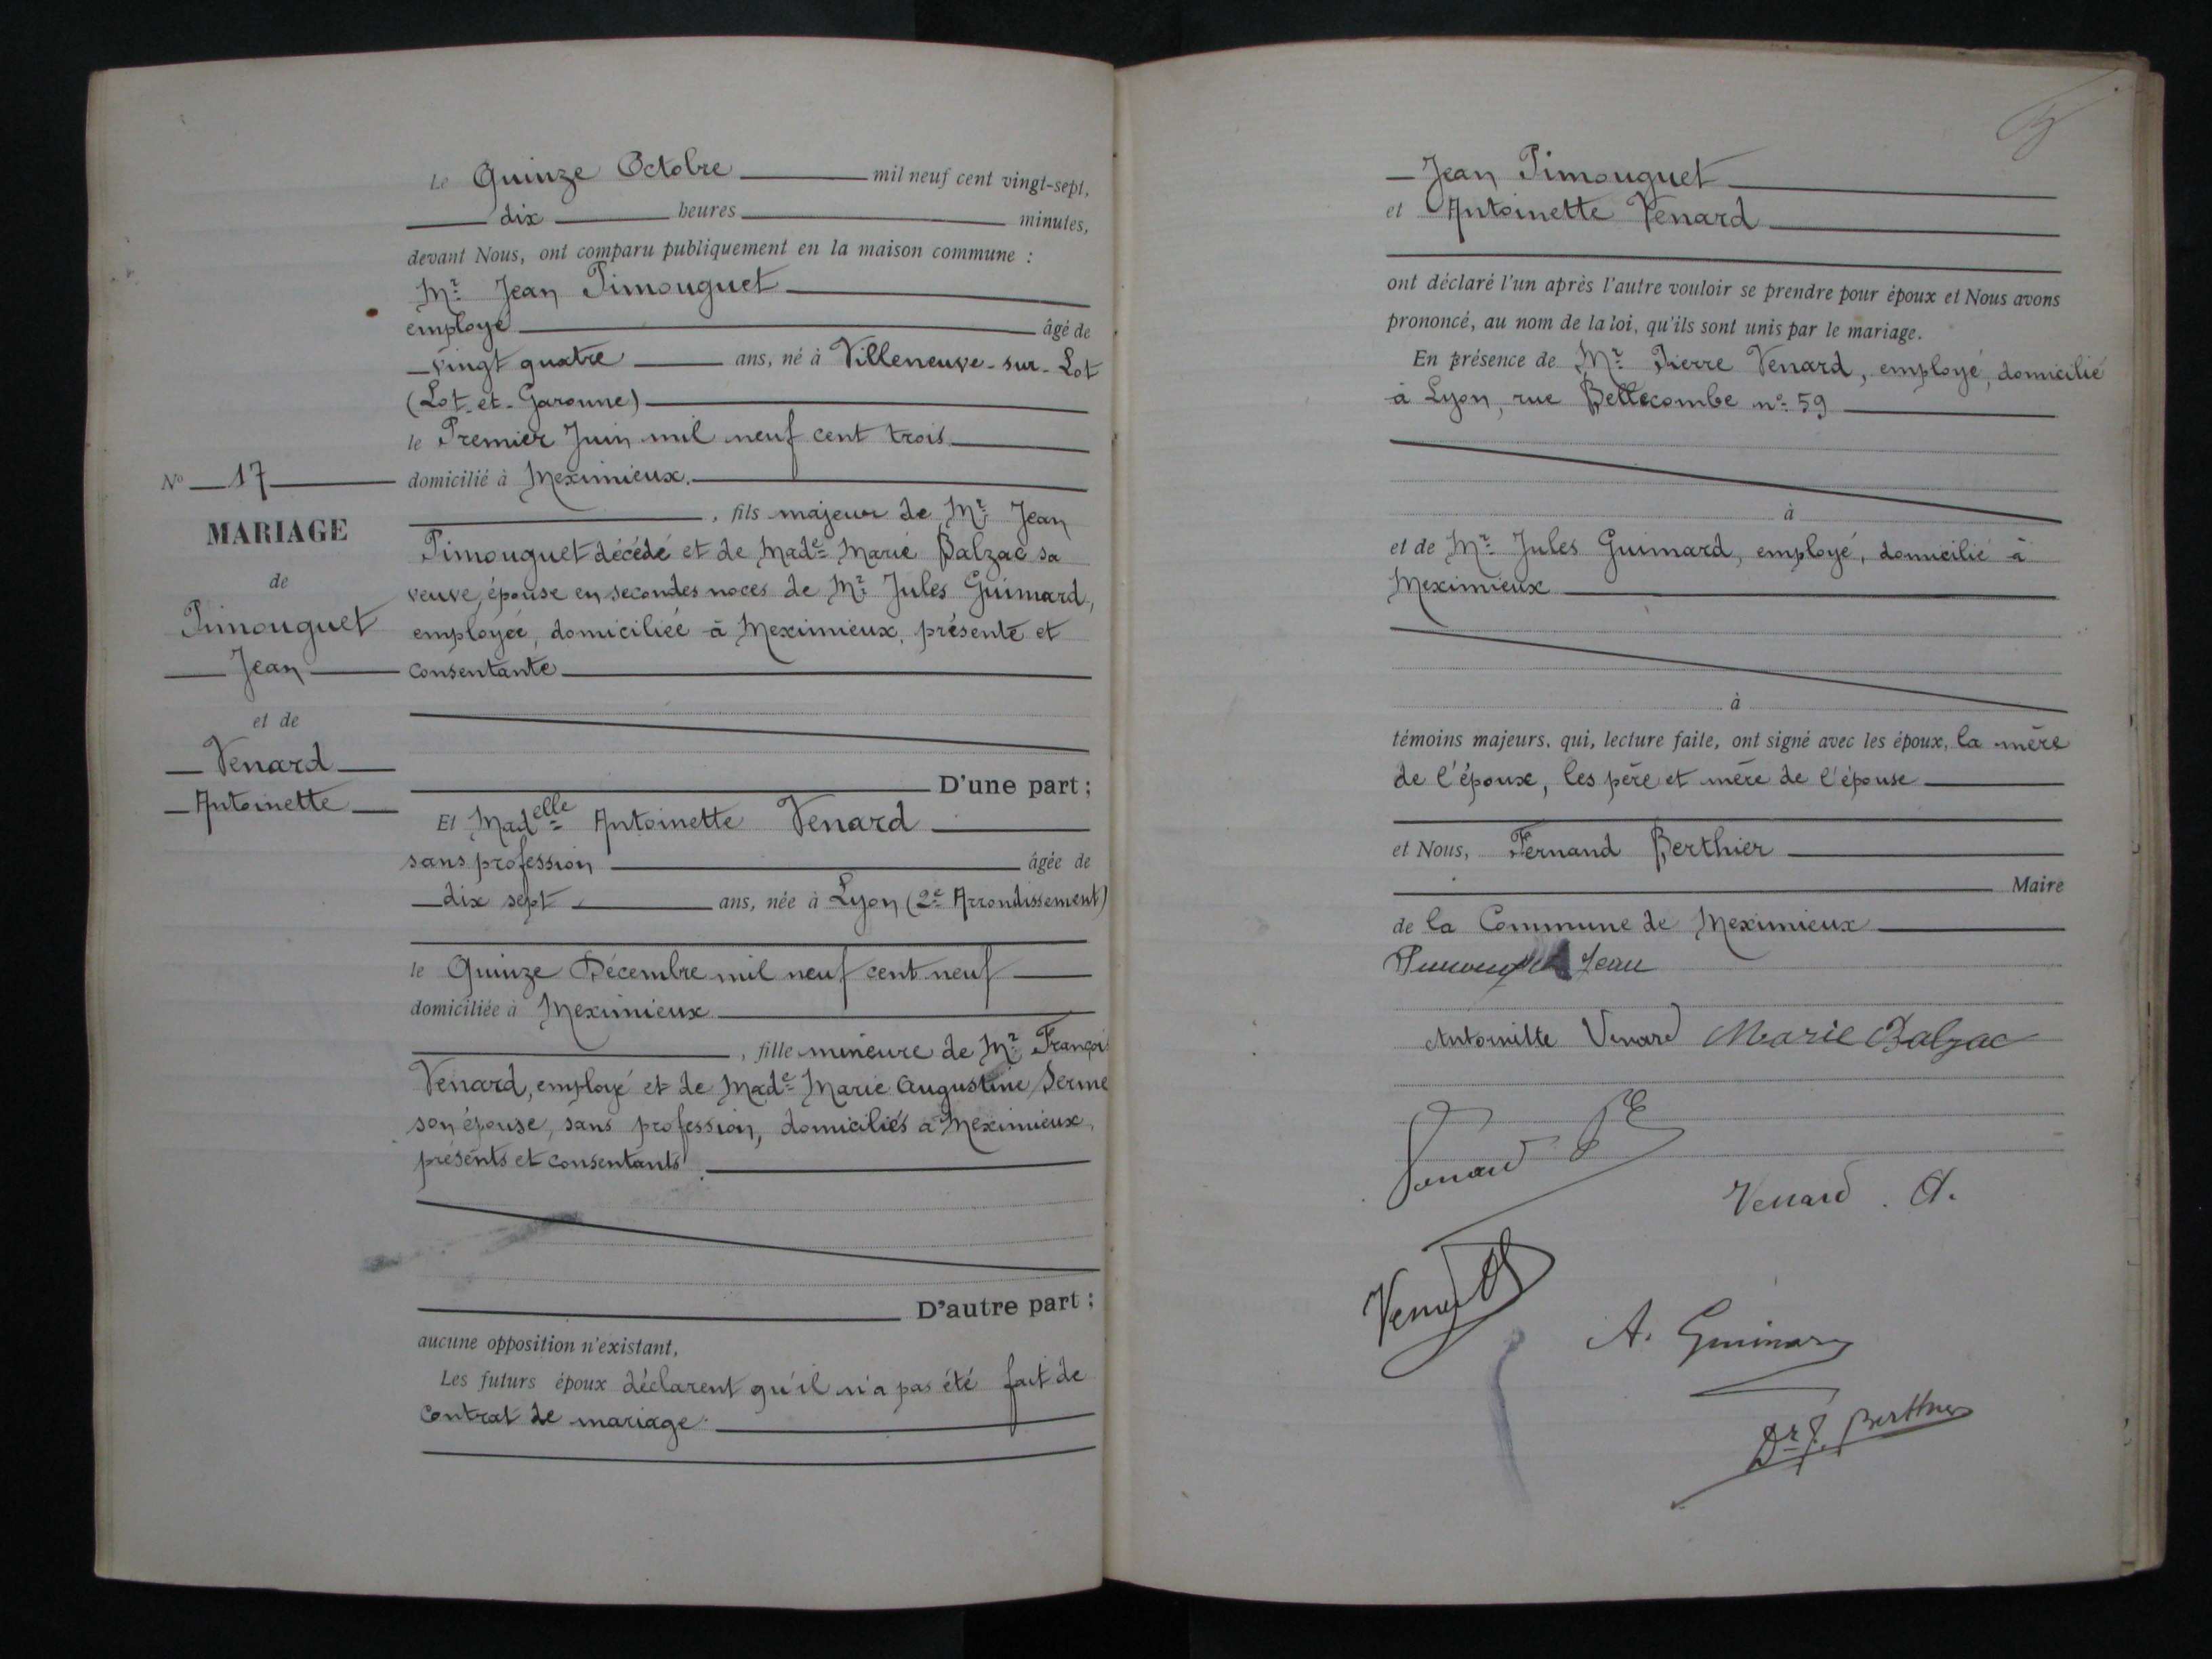 Le Quinze Octobre mil neuf cent vingt-sept,
dix heures minutes,
devant Nous, ont comparu publiquement en la maison commune :
Mr Jean Pimouguet
employé âgé de
vingt quatre ans, né à Villeneuve-sur-Lot
(Lot-et-Garonne)
le Premier Juin mil neuf cent trois
domicilié à Meximieux.
, fils majeur de Mr Jean
Pimouguet décédé et de Made Marie Balzac sa
veuve, épouse en secondes noces de Mr Jules Guimard,
employée, domiciliée à Meximieux, présente et
consentante
D'une part ;
Et Madelle Antoinette Venard
sans profession âgée de
dix sept ans, née à Lyon (2e Arrondissement)
le Quinze Décembre mil neuf cent neuf
domiciliée à Meximieux
, fille mineure de Mr François
Venard, employé et de Made Marie Augustine Serme
son épouse, sans profession, domiciliés à Meximieux,
présents et consentants.
D'autre part ;
aucune opposition n'existant,
Les futurs époux déclarent qu'il n'a pas été fait de
contrat de mariage.
No 17
MARIAGE
de
Pimouguet
Jean
et de
Venard
Antoinette
Jean Pimouguet
et Antoinette Venard
ont déclaré l'un après l'autre vouloir se prendre pour époux et Nous avons
prononcé, au nom de la loi, qu'ils sont unis par le mariage.
En présence de Mr Pierre Venard, employé, domicilié
à Lyon, rue Bellecombe no 59
à
et de Mr Jules Guimard, employé, domicilié à
Meximieux
à
témoins majeurs, qui, lecture faite, ont signé avec les époux, la mère
de l'époux, les père et mère de l'épouse
et Nous, Fernand Berthier
Maire
de la Commune de Meximieux
Pimouguet Jean
Antoinette Venard Marie Balzac
Venard
Venard . A.
Venard
A. Guimard
Dr F. Berthier